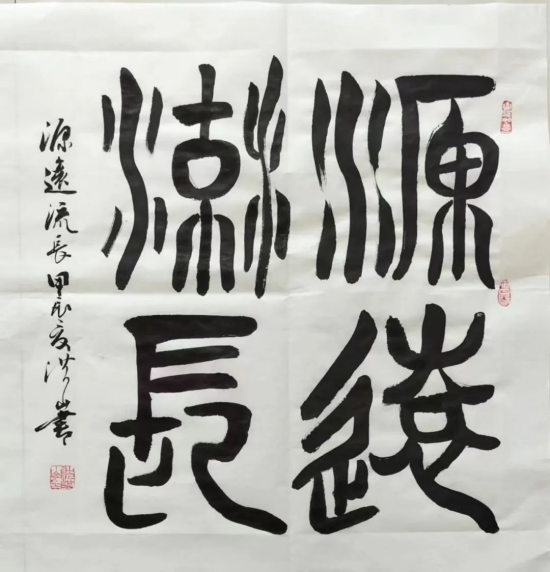 源遠
流長
源遠流長甲辰夏洪書